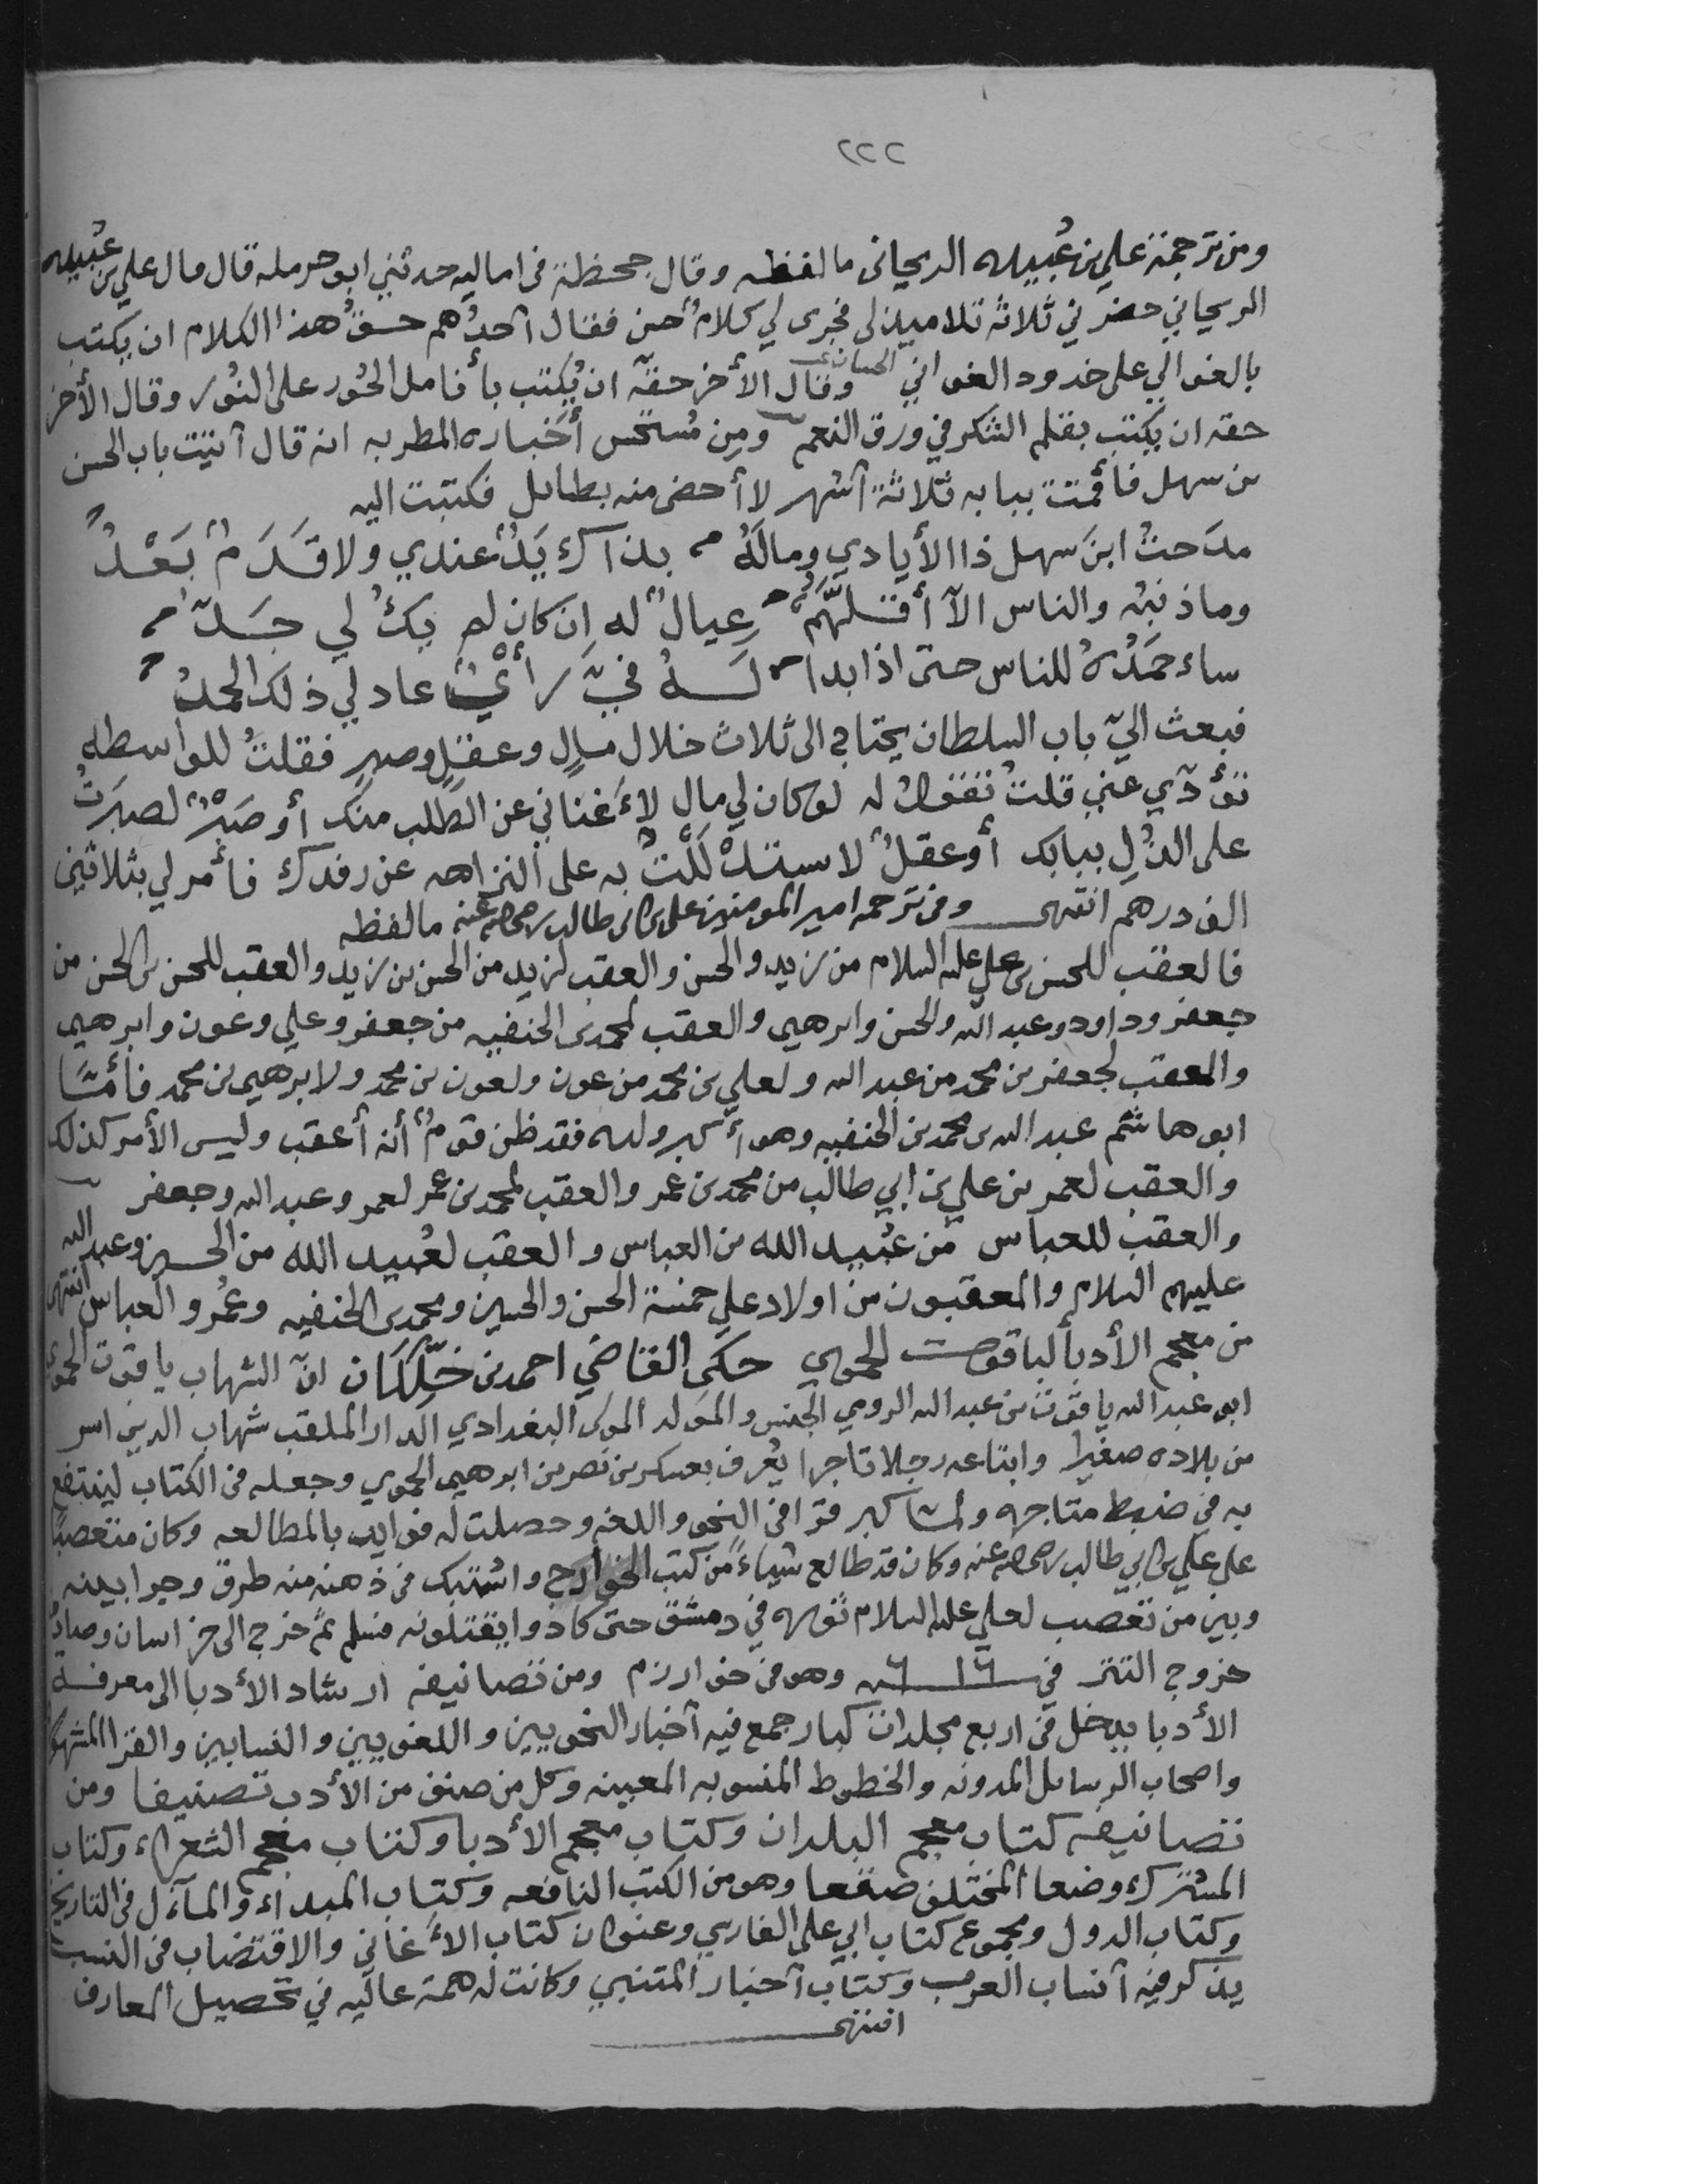 ٢٢٢
ومن ترجمة علي بن عُبيده الريحاني ما لفظه وقال جحظة في اماليه حدثني ابو حرمله قال قال علي بن عُبيده
الريحاني حضرني ثلاثة تلاميذ لي فجرى لي كلامٌ حسن فقال أحدُهم حقُّ هذا الكلام ان يكتب
بالغوالي على خدود الغواني الحسان وقال الأخر حقّه ان يُكتب بأنامل الحُور على النُور وقال الأخر
حقه ان يكتب بقلم الشكر في ورق النعم ومِن مُستحسن أخباره المطربه انه قال أتيت باب الحسن
بن سهل فأقمت ببابه ثلاثة أشهر لا أحضى منه بطايل فكتبت اليه
مدَحتُ ابنَ سهل ذا الأيادي ومالَهُ بذاك يَدٌ عندي ولا قَدَمٌ بَعْدُ
وما ذنبُه والناس الاّ أقلهّمُ عِيالٌ له إن كان لم يكُ لي جَدّ
ساءحمَدُهُ للناس حتى اذا بدا لَهُ فيَّ رأيٌ عاد لي ذلك الحمدُ
فبعث اليّ باب السلطان يحتاج الى ثلاث خلال مالٍ وعقلٍ وصبرٍ فقلتُ للواسطه
تؤدّي عني قلتُ تقول له لو كان لي مال لأغناني عن الطلب منك أو صَبْرٌ لصبَرتُ
على الذُل ببابك أو عقلٌ لاستدْلَلْتُ به على النزاهه عن رفدك فأمر لي بثلاثين
الف درهم انتهى ومن ترجمه امير المومنين علي بن ابي طالب رضي الله عنه ما لفظه
فالعقب للحسن بن علي عليه السلام من زيد والحسن والعقب لزيد من الحسن بن زيد والعقب للحسن بن الحسن من
جعفر وداود وعبد الله والحسن وابرهيم والعقب لمحمد بن الحنفيه من جعفر وعلي وعون وابرهيم
والعقب لجعفر بن محمد من عبد الله ولعلي بن محمد من عون ولعون بن محمد ولابرهيم بن محمد فأمّا
ابو هاشم عبد الله بن محمد بن الحنفيه وهو أكبر ولده فقد ظن قومٌ أنه أعقب وليس الأمر كذلك
والعقب لعمر بن علي بن ابي طالب من محمد بن عمر والعقب لمحمد بن عمر لعمر وعبد الله وجعفر
والعقب للعباس من عُبيد الله بن العباس والعقب لعُبيد الله من الحسن وعبد الله
عليهم السلام والمعقبون من اولاد علي خمسة الحسن والحسين ومحمد بن الحنفيه وعُمر والعباس انتهى
من معجم الأدبأ لياقوت الحموي حكى القاضي احمد بن خلّكان انّ الشهاب ياقوت الحموي
ابو عبد الله ياقوت بن عبد الله الرومي الجنس والمَولد المولى البغدادي الدار الملقب شهاب الدين اسر
من بلاده صغيرا وابتاعه رجلا تاجرا يُعرف بعسكر بن نصر بن ابرهيم الحموي وجعله في الكتاب لينتفع
به في ضبط متاجره ولما كبر قرا في النحو واللغه وحصلت له فوايد بالمطالعه وكان متعصبًا
على علي بن ابي طالب رضي الله عنه وكان قد طالع شياءً من كتب الخوارج واشتبك في ذهنه منه طرق وجرا بينه
وبين من تعصب لعلي عليه السلام ثوره في دمشق حتى كادوا يقتلونه فسلم ثم خرج الى خراسان وصادف
خروج التتر في ٦١٦ سنه وهو في خوارزم ومن تصانيفه ارشاد الأدبا الى معرفة
الأدبا يدخل في اربع مجلدات كبار جمع فيه أخبار النحويين واللغويين والنسابين والقرا المشهورين
واصحاب الرسايل المدونه والخطوط المنسوبه المعينه وكل من صنف من الأدب تصنيفا ومن
تصانيفه كتاب معجم البلدان وكتاب معجم الأدبا وكتاب معجم الشعراء وكتاب
المشترك وضعا المختلف صقعا وهو من الكتب النافعه وكتاب المبداء والمآل في التاريخ
وكتاب الدول ومجموع كتاب ابي علي الفارسي وعنوان كتاب الأغاني والاقتضاب في النسب
يذكر فيه أنساب العرب وكتاب أخبار المتنبي وكانت له همة عاليه في تحصيل المعارف
انتهى